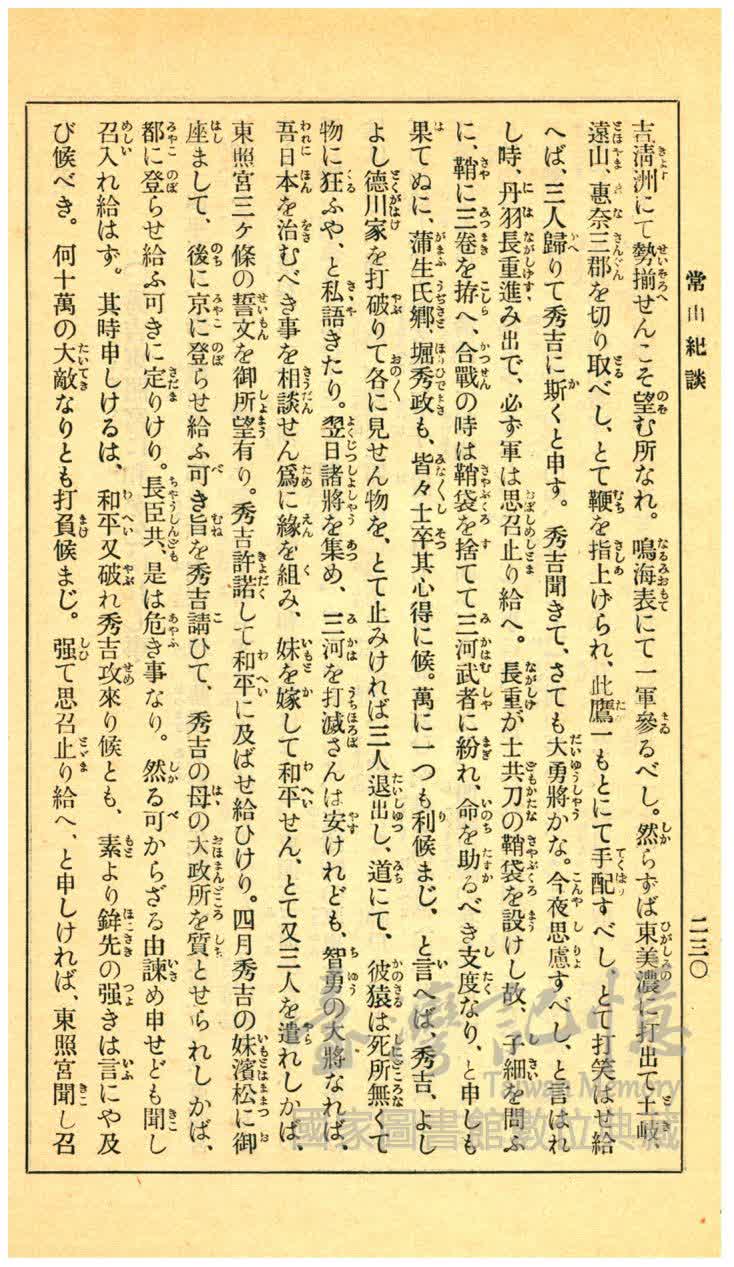 常山紀談
二三〇
吉、淸洲にて勢揃せんこそ望む所なれ。鳴海表にて一軍參るべし。然らずば東美濃に打出て土岐、
遠山、惠奈三郡を切り取べし、とて鞭を指上げられ、此鷹一もとにて手配すべし、とて打笑はせ給
へば、三人歸りて秀吉に斯くと申す。秀吉聞きて、さても大勇將かな。今夜思慮すべし、と言はれ
し時、丹羽長重進み出で、必ず軍は思召止り給へ。長重が士共刀の鞘袋を設けし故、子細を問ふ
に、鞘に三卷を拵へ、合戰の時は鞘袋を捨てて三河武者に紛れ、命を助るべき支度なり、と申しも
果てぬに、蒲生氏鄕、堀秀政も、皆々士卒其心得に候。萬に一つも利候まじ、と言へば、秀吉、よし
よし德川家を打破りて各に見せん物を、とて止みければ三人退出し、道にて、彼猿は死所無くて
物に狂ふや、と私語きたり。翌日諸將を集め、三河を打滅さんは安けれども、智勇の大將なれば、
吾日本を治むべき事を相談せん爲に緣を組み、妹を嫁して和平せん、とて又三人を遣れしかば、
東照宮三ケ條の誓文を御所望有り。秀吉許諾して和平に及ばせ給ひけり。四月秀吉の妹濱松に御
座まして、後に京に登らせ給ふ可き旨を秀吉請ひて、秀吉の母の大政所を質とせられしかば、
都に登らせ給ふ可きに定りけり。長臣共、是は危き事なり。然る可からざる由諫め申せども聞し
召入れ給はず。其時申しけるは、和平又破れ秀吉攻來り候とも、素より鉾先の强きは言にや及
び候べき。何十萬の大敵なりとも打負候まじ。强て思召止り給へ、と申しければ、東照宮聞し召
臺灣記憶
Taiwan Memory
國家圖書館數位典藏